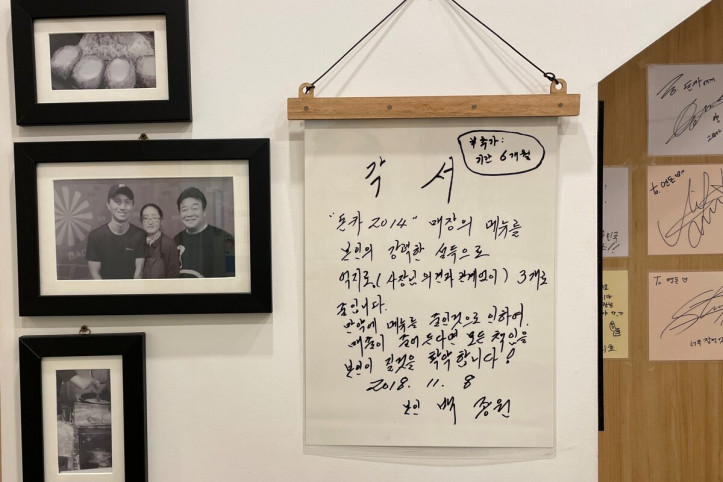 각 서
* 추가:
기간 6개월
"돈카 2014" 매장의 메뉴를
본인의 강력한 설득으로
억지로, (사장님 의견과 관계없이) 3개로
줄입니다.
만약에 메뉴를 줄인것으로 인하여,
매출이 줄어든다면 모든 책임을
본인이 질것을 확약합니다!
2018. 11. 8
본인 백 종원